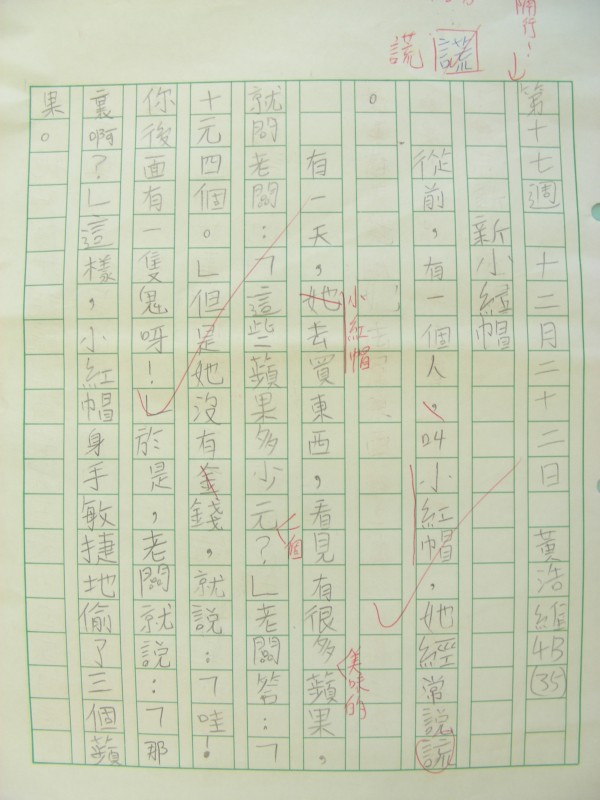 隔行!
謊 謊
第十七週 十二月二十二日 黃浩維 4B (35)
新小紅帽
從前,有一個人,叫小紅帽,她經常說謊
。
有一天,她去買東西,看見有很多蘋果,
小紅帽
美味的
就問老闆:「這些蘋果多少元?」老闆答:「
一個
十元四個。」但是她沒有金錢,就說:「哇!
你後面有一隻鬼呀!」於是,老闆就說:「那
裏啊?」這樣,小紅帽身手敏捷地偷了三個蘋
果。